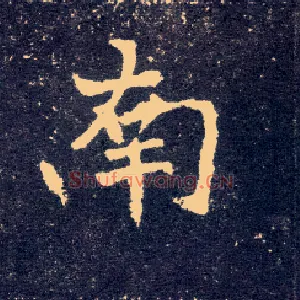 南
Shufawang.CN